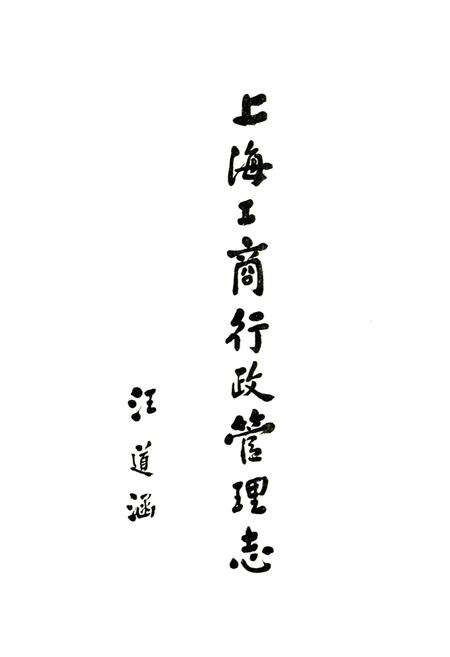 上海工商行政管理志
汪道涵